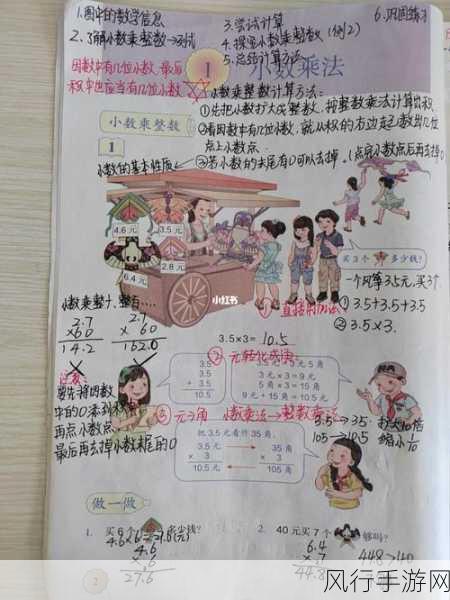 1.图中的数学信息
2.了解小数乘整数
3.尝试计算
4.探究小数乘整数(例2)
5.总结计算方法
6.巩固练习
因数中有几位小数,最后
积中也应当有几位小数
1 小数乘法
小数乘整数计算方法:
①先把小数扩大成整数,按整数乘法计算出积
②看因数中有几位小数,就从积的右边起数出几位
点上小数点
③积小数的末尾有0可以去掉。(点完小数点后再去掉0
小数乘整数
1
小数的基本性质
4.6元
3.5元
2.8元
6.4元
买3个 多少钱?
一个风筝3.5元,买3个
①3.5+3.5+3.5
②3.5×3.
小红书
① 直接用加法
3.5×3= 10.5
小数乘整十、整百
2.7
×60
14.2
2.7
× 60
162.0
注意:
要先将因数
中的0
再点小数点
最后再去掉小数末尾的0
② 元转化成
3.5
3.5
+ 3.5
10.5
3元×3=9元
5角×3=15角
9元+15角=10.5元
③ 元→角 小数乘法→整数乘法
把3.5元看作35角。
3.5元
× 3
10.5元
35角
× 3
105角
3.5→35 扩大10倍
105→10.5 缩小1/10
做一做
1. 买6个 多少钱?
4.6×6=27.6(元)
4.6
× 6
27.6
2. 40元买7个 够吗?
6.4
× 7
44.8
44.8>40
2
风行手游网